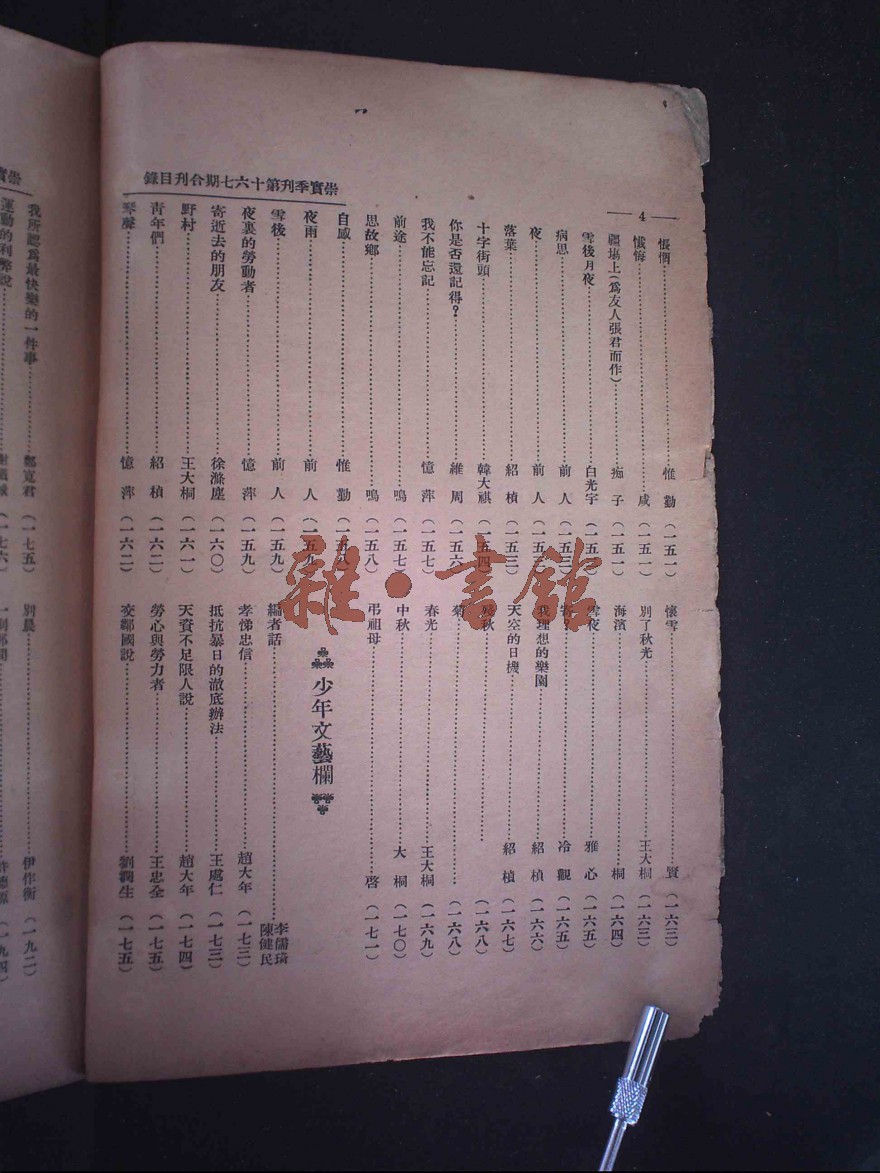 崇實季刊第十六七期合刊目錄
4
悵惘 惟勤 (一五一)
懺悔 咸 (一五一)
疆場上(爲友人張君而作) 痴子 (一五一)
雪後月夜 白光宇 (一五二)
病思 前人 (一五三)
夜 前人 (一五三)
落葉 紹楨 (一五三)
十字街頭 韓大祺 (一五四)
你是否還記得? 維周 (一五六)
我不能忘記 憶萍 (一五七)
前途 鳴 (一五七)
思故鄉 鳴 (一五八)
自感 惟勤 (一五八)
夜雨 前人 (一五九)
雪後 前人 (一五九)
夜裏的勞動者 憶萍 (一五九)
寄逝去的朋友 徐滌塵 (一六〇)
野村 王大桐 (一六一)
青年們 紹楨 (一六二)
琴聲 憶萍 (一六二)
懷雪 賢 (一六三)
別了秋光 王大桐 (一六三)
海濱 桐 (一六四)
雪夜 雅心 (一六五)
寄? 冷觀 (一六五)
我理想的樂園 紹楨 (一六六)
天空的日機 紹楨 (一六七)
秋 (一六八)
菊 (一六八)
春光 王大桐 (一六九)
中秋 大桐 (一七〇)
弔祖母 啓 (一七一)
少年文藝欄
編者話 李儒琦 陳健民
孝悌忠信 趙大年 (一七三)
抵抗暴日的澈底辦法 王處仁 (一七三)
天資不足限人說 趙大年 (一七四)
勞心與勞力者 王忠全 (一七五)
交鄰國說 劉潤生 (一七五)
崇實
我所認爲最快樂的一件事 鄭寬君 (一七五)
運動的利弊說 (一七六)
別晨 伊作衡 (一九二)
(一九四)
雜·書館